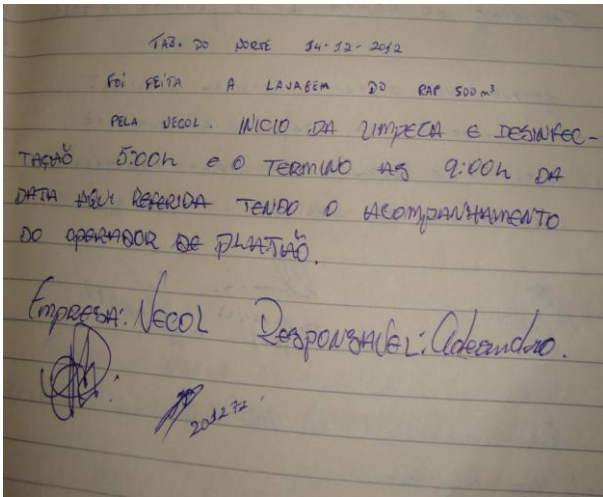 TAB. DO NORTE 14-12-2012
FOI FEITA A LAVAGEM DO RAP 500 m³
PELA VECOL. INICIO DA LIMPECA E DESINFEC-
TAÇÃO 5:00h e O TERMINO AS 9:00h DA
DATA AQUI REFERIDA TENDO O ACOMPANHAMENTO
DO OPERADOR DE PLATÃO.
EMPRESA: VECOL RESPONSAVEL: Adeandro.
201272